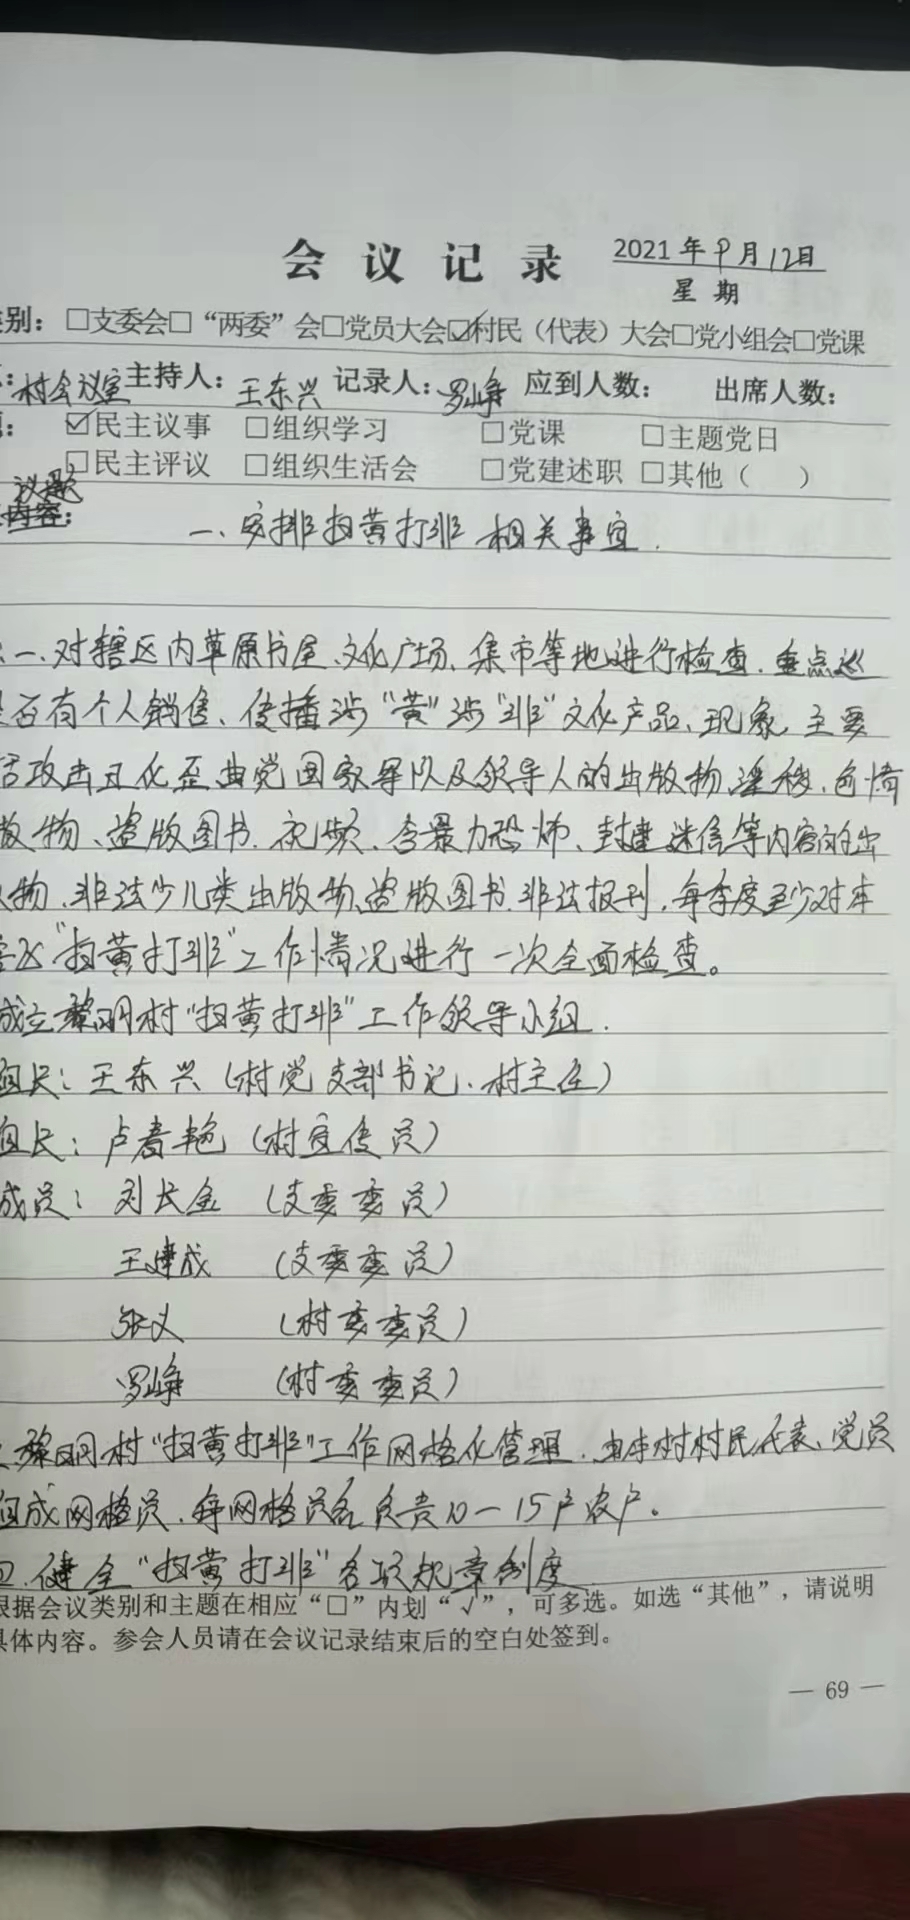 会议记录 2021年9月12日
星期
别：□支委会□“两委”会□党员大会☑村民（代表）大会□党小组会□党课
：村会议室 主持人：王东兴 记录人：罗峥 应到人数： 出席人数：
： ☑民主议事 □组织学习 □党课 □主题党日
□民主评议 □组织生活会 □党建述职 □其他（ ）
议题
内容： 一、安排扫黄打非相关事宜.
一、对辖区内草原书屋、文化广场、集市等地进行检查，重点巡
是否有个人销售、传播涉“黄”涉“非”文化产品、现象，主要
括攻击丑化歪曲党国家军队及领导人的出版物，淫秽、色情
版物、盗版图书、视频、含暴力恐怖、封建迷信等内容的出
物、非法少儿类出版物、盗版图书、非法报刊，每季度至少对本
“扫黄打非”工作情况进行一次全面检查。
成立黎明村“扫黄打非”工作领导小组.
组长：王东兴（村党支部书记、村主任）
组长：卢春艳（村宣传员）
成员：刘长金（支委委员）
王建成（支委委员）
张义（村委委员）
罗峥（村委委员）
黎明村“扫黄打非”工作网格化管理，由本村村民代表、党员
组成网格员，每网格员各负责10—15户农户。
四、健全“扫黄打非”各项规章制度
根据会议类别和主题在相应“□”内划“√”，可多选。如选“其他”，请说明
具体内容。参会人员请在会议记录结束后的空白处签到。
— 69 —